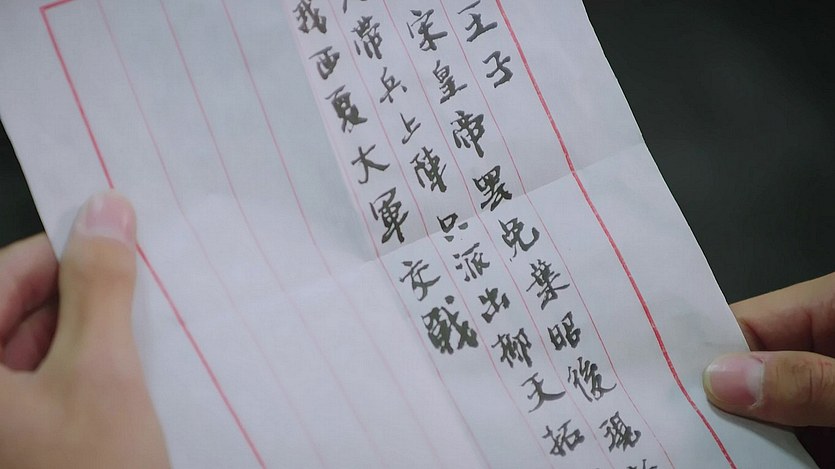 王子
宋皇帝罢免葉昭後現
帶兵上陣只派出柳天拓
我西夏大軍交戰